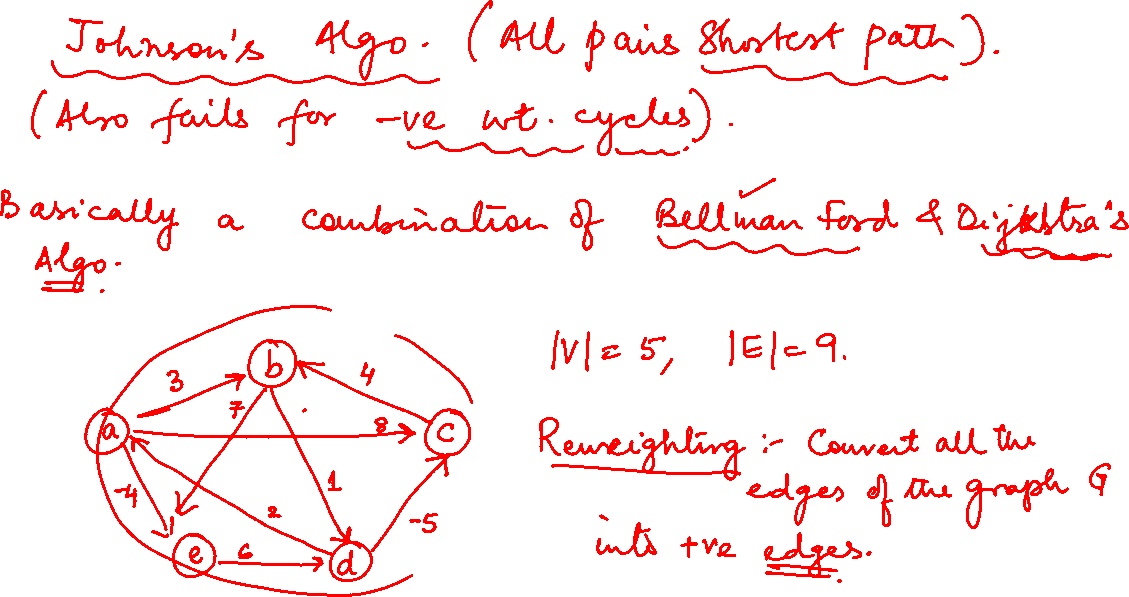 Johnson's Algo. (All pairs Shortest path).
(Also fails for -ve wt. cycles).
Basically a combination of Bellman Ford & Dijkstra's
Algo.
|V| = 5, |E| = 9.
b
3
4
7
a
8
c
Reweighting :- Convert all the
edges of the graph G
into +ve edges.
-4
1
2
-5
e
6
d